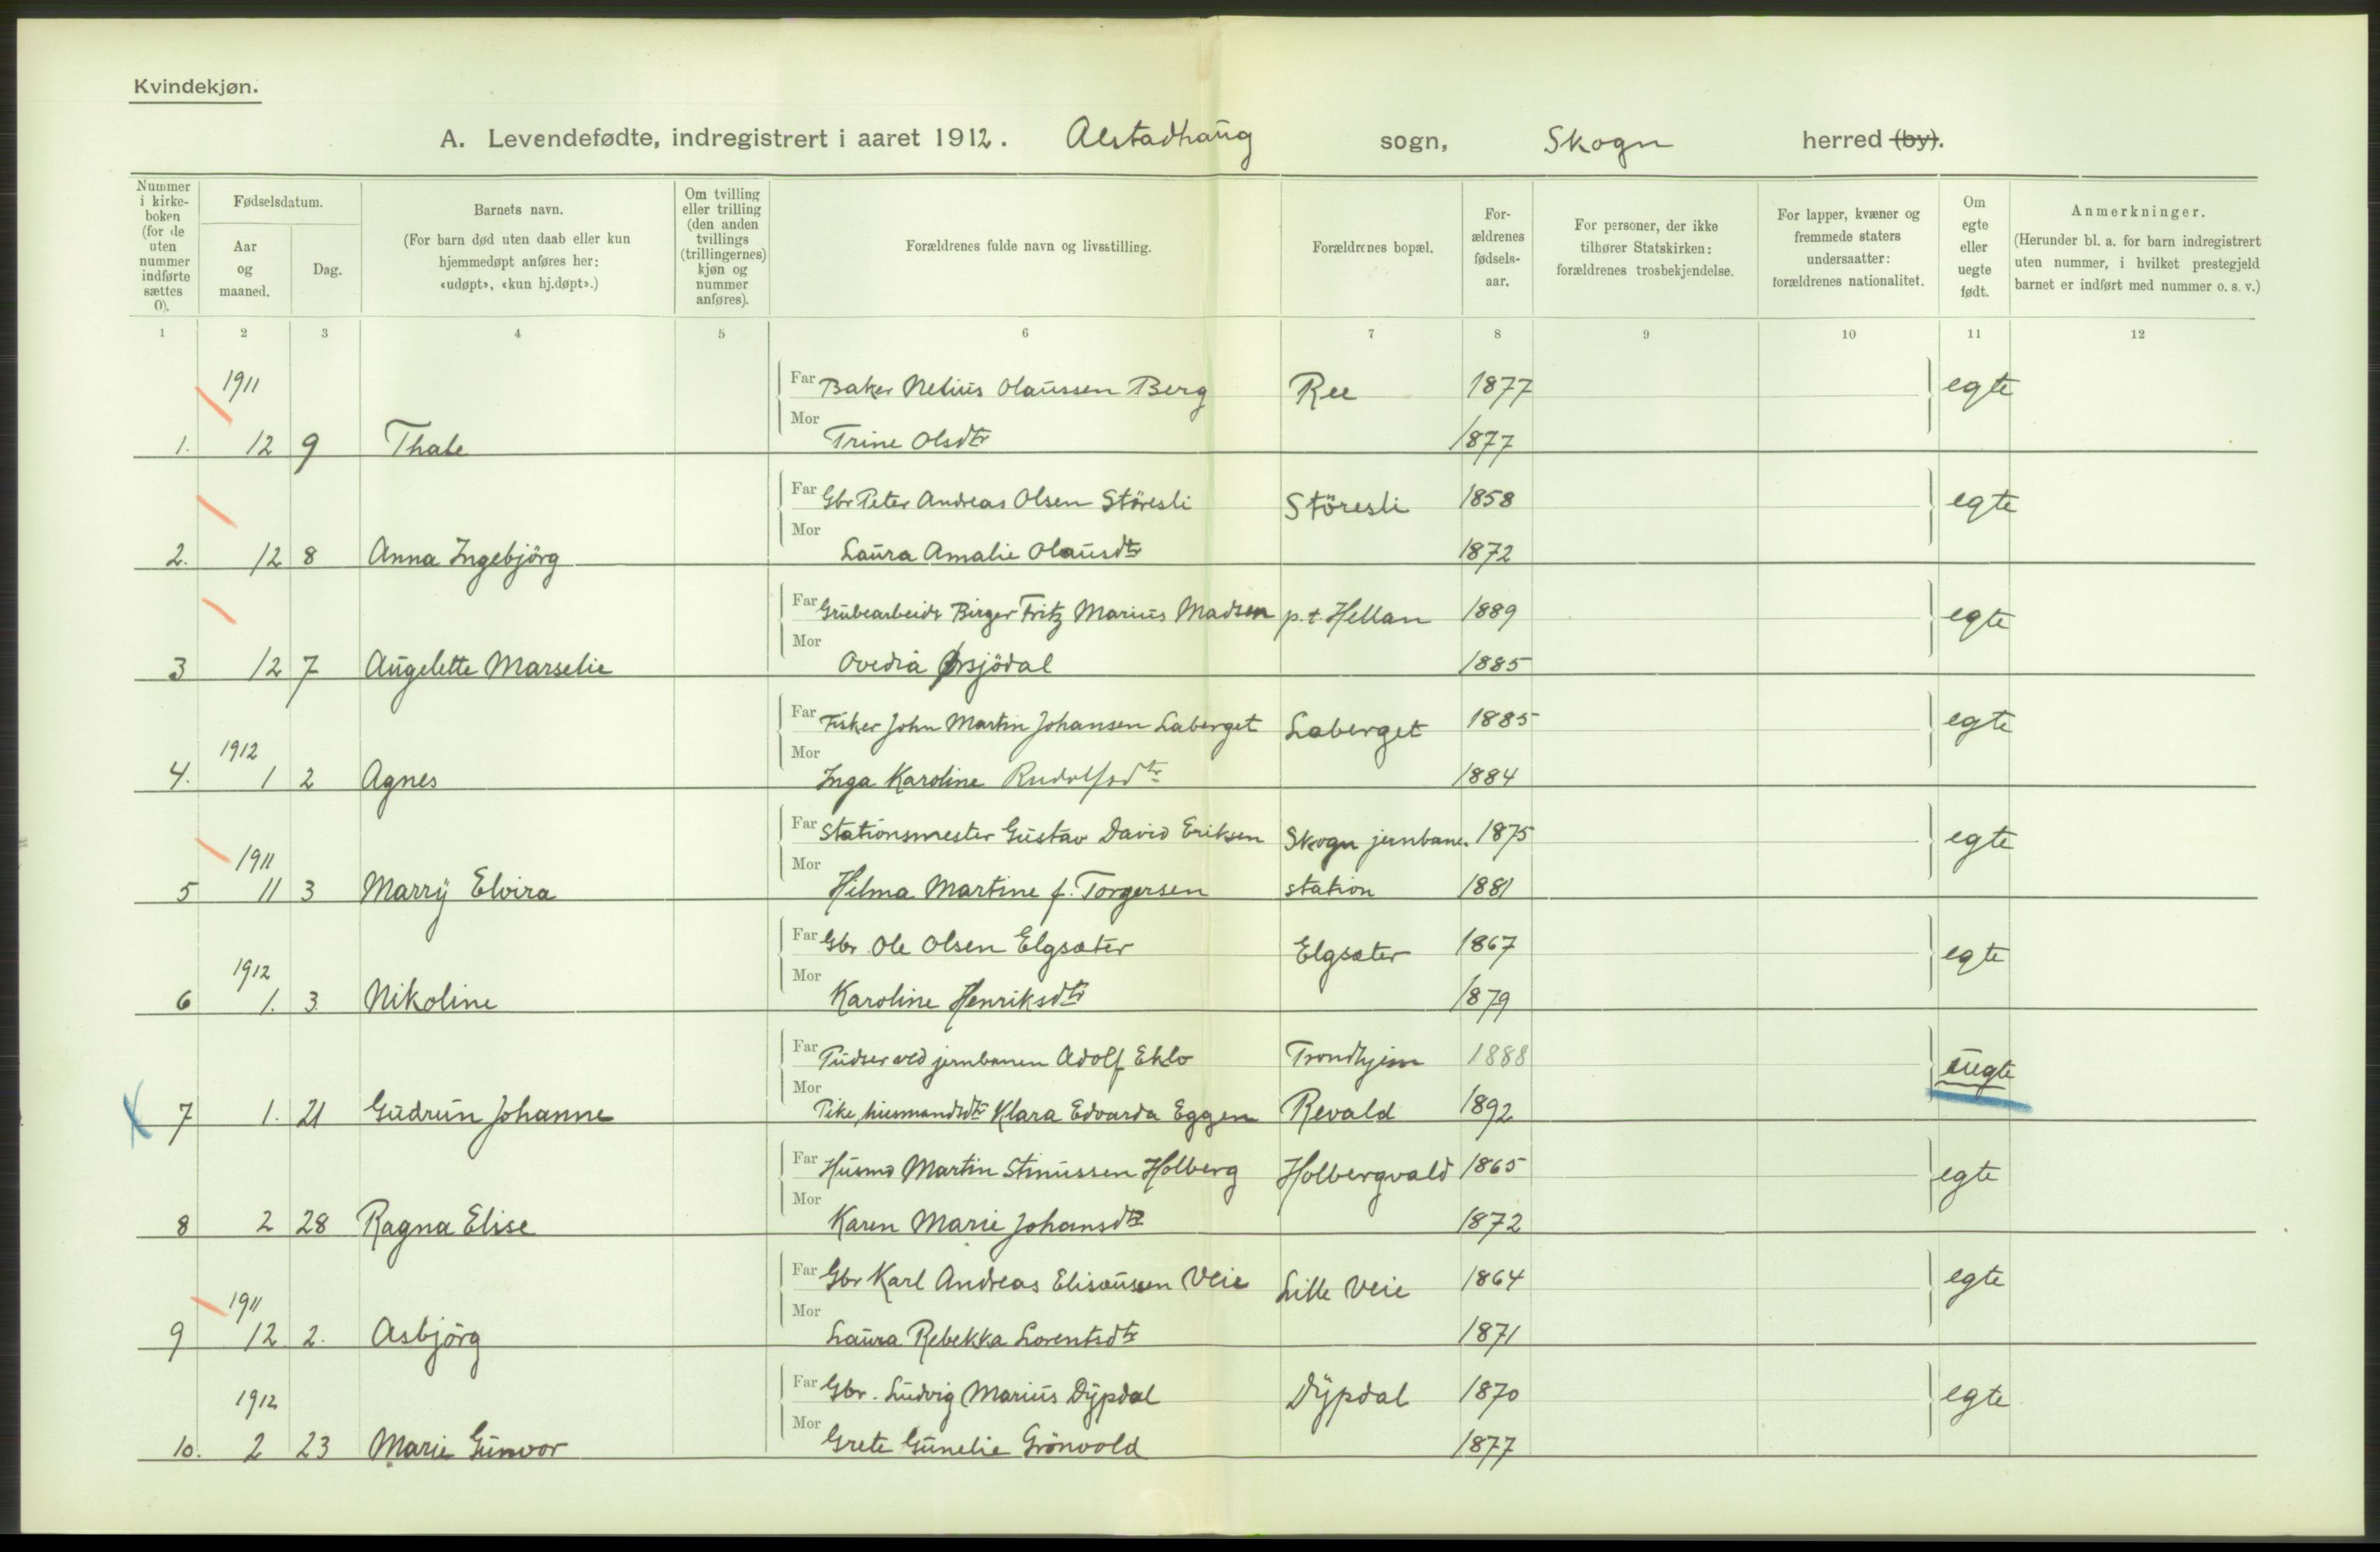 Kvindekjøn.
A. Levendefødte, indregistrert i aaret 1912. Alstadhaug sogn, Skogn herred (by).
Nummer i kirke-boken (for de uten nummer indførte sættes 0).
Fødselsdatum.
Aar og maaned.
Dag.
Barnets navn.
(For barn død uten daab eller kun hjemmedøpt anføres her: «udøpt», «kun hj.døpt».)
Om tvilling eller trilling (den anden tvillings (trillingernes) kjøn og nummer anføres).
Forældrenes fulde navn og livsstilling.
Forældrenes bopæl.
For-ældrenes fødsels-aar.
For personer, der ikke tilhører Statskirken: forældrenes trosbekjendelse.
For lapper, kvæner og fremmede staters undersaatter: forældrenes nationalitet.
Om egte eller uegte født.
Anmerkninger.
(Herunder bl. a. for barn indregistrert uten nummer, i hvilket prestegjeld barnet er indført med nummer o. s. v.)
1 2 3 4 5 6 7 8 9 10 11 12
1911 Far Baker Nelius Olaussen Berg Ree 1877 egte
1. 12 9 Thale Mor Trine Olsdtr 1877
Far Gbr Peter Andreas Olsen Störesli Störesli 1858 egte
2. 12 8 Anna Ingebjörg Mor Laura Amalie Olausdtr 1872
Far Grubearbeidr Birger Fritz Marius Madsen p.t Hellan 1889 egte
3 12 7 Augelette Marselie Mor Ovedia Ørsjödal 1885
Far Fisker John Martin Johansen Laberget Laberget 1885 egte
1912
4. 1 2 Agnes Mor Inga Karoline Rudolfsdtr 1884
Far Stationsmester Gustav David Eriksen Skogn jernbane- 1875 egte
1911
5 11 3 Marry Elvira Mor Hilma Martine f. Torgersen station 1881
Far Gbr Ole Olsen Elgsæter Elgsæter 1867 egte
1912
6 1. 3 Nikoline Mor Karoline Henriksdtr 1879
Far Pudser ved jernbanen Adolf Eklo Trondhjem 1888 uegte
7 1. 21 Gudrun Johanne Mor Pike, husmandsdtr Klara Edvarda Eggen Revald 1892
Far Husmd Martin Stinussen Holberg Holbergvald 1865 egte
8 2 28 Ragna Elise Mor Karen Marie Johansdtr 1872
Far Gbr Karl Andreas Elisæussen Veie Lille Veie 1864 egte
1911
9 12 2. Asbjörg Mor Laura Rebekka Lorentsdtr 1871
Far Gbr. Ludvig Marius Dypdal Dypdal 1870 egte
1912
10. 2 23 Marie Gunvor Mor Grete Gunelie Grönvold 1877